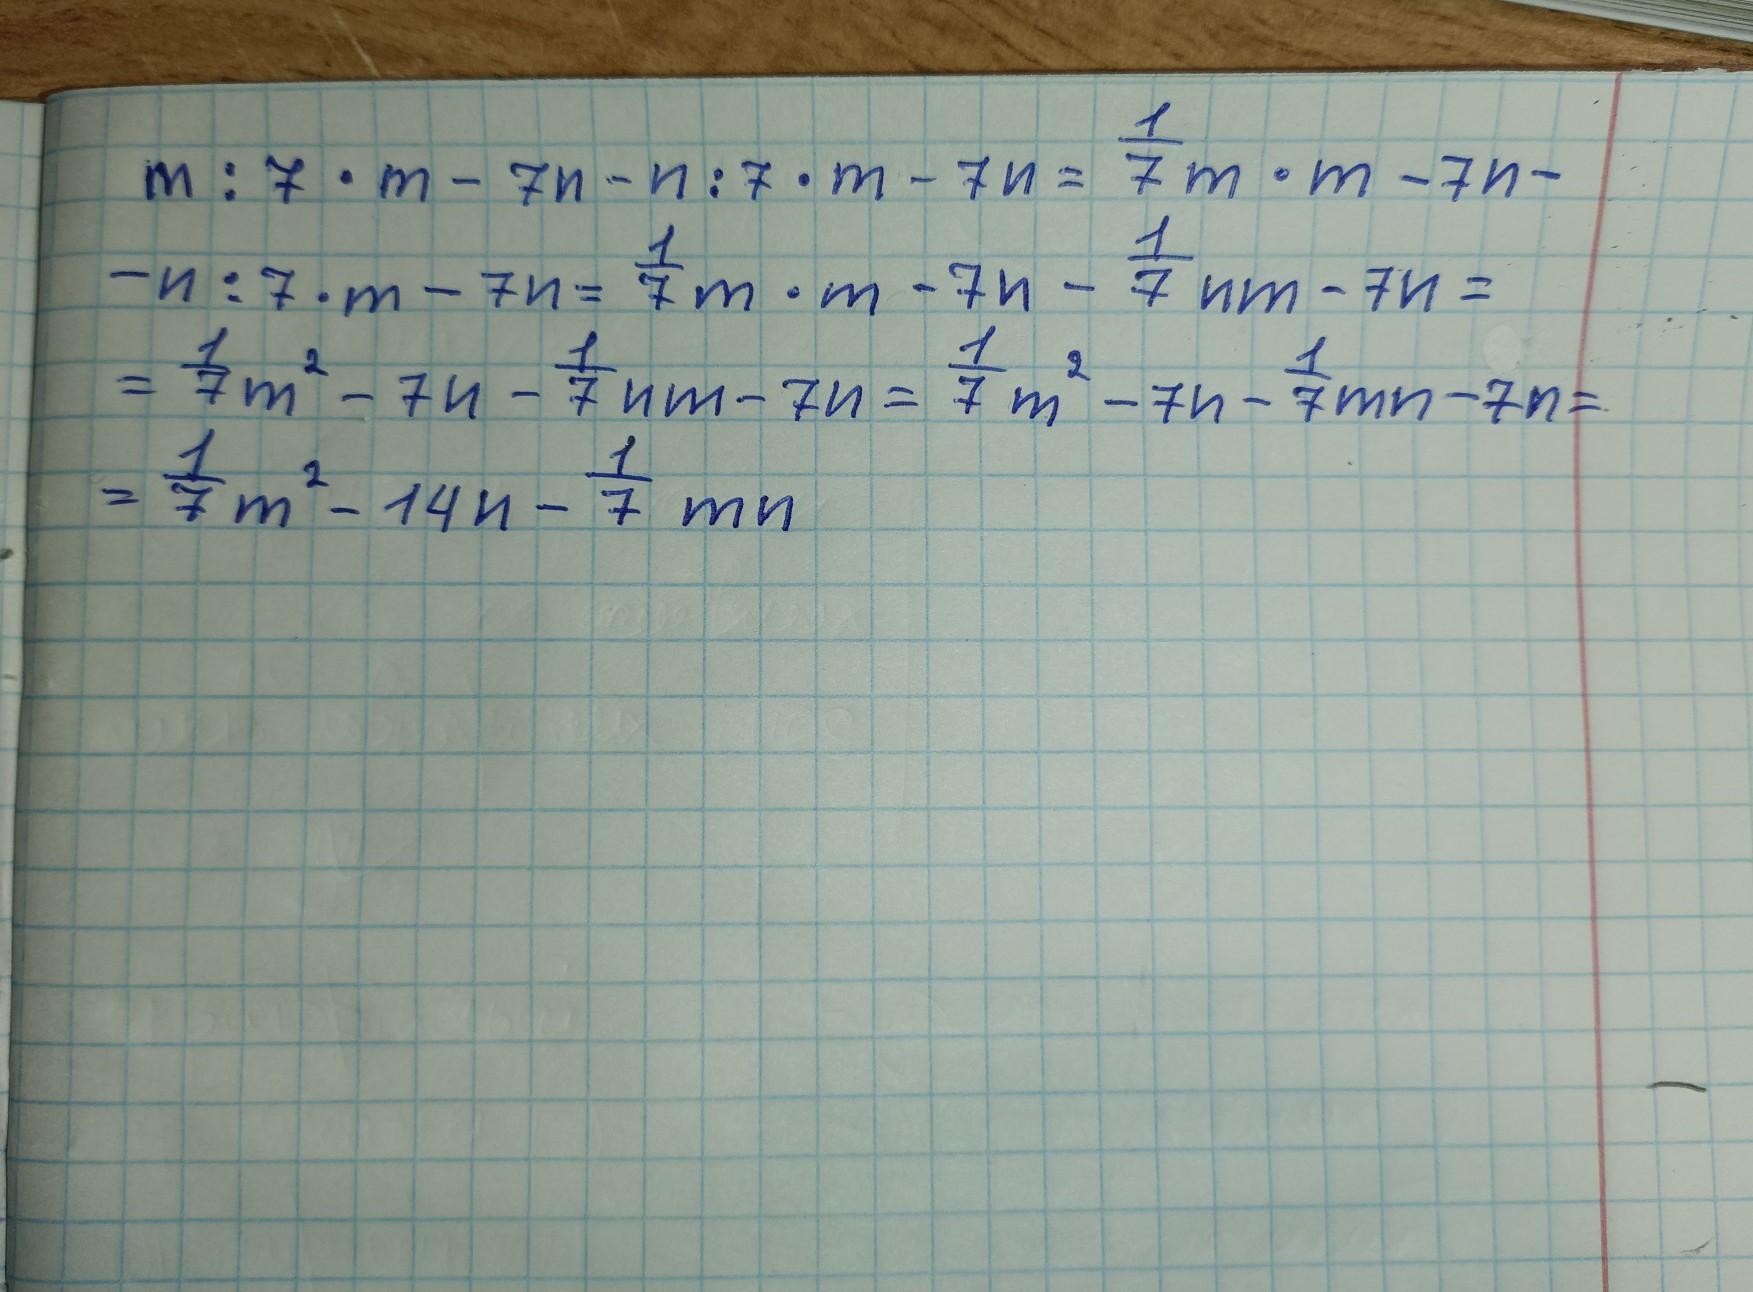 m : 7 · m - 7n - n : 7 · m - 7n = 1/7 m · m - 7n -
- n : 7 · m - 7n = 1/7 m · m - 7n - 1/7 nm - 7n =
= 1/7 m² - 7n - 1/7 nm - 7n = 1/7 m² - 7n - 1/7 mn - 7n =
= 1/7 m² - 14n - 1/7 mn